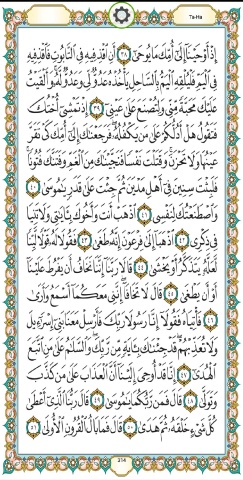 Ta-Ha
إِذْ أَوْحَيْنَا إِلَىٰ أُمِّكَ مَا يُوحَىٰ ٣٨ أَنِ اقْذِفِيهِ فِي التَّابُوتِ فَاقْذِفِيهِ
فِي الْيَمِّ فَلْيُلْقِهِ الْيَمُّ بِالسَّاحِلِ يَأْخُذْهُ عَدُوٌّ لِّي وَعَدُوٌّ لَّهُ وَأَلْقَيْتُ
عَلَيْكَ مَحَبَّةً مِّنِّي وَلِتُصْنَعَ عَلَىٰ عَيْنِي ٣٩ إِذْ تَمْشِي أُخْتُكَ
فَتَقُولُ هَلْ أَدُلُّكُمْ عَلَىٰ مَن يَكْفُلُهُ فَرَجَعْنَاكَ إِلَىٰ أُمِّكَ كَيْ تَقَرَّ
عَيْنُهَا وَلَا تَحْزَنَ وَقَتَلْتَ نَفْسًا فَنَجَّيْنَاكَ مِنَ الْغَمِّ وَفَتَنَّاكَ فُتُونًا
فَلَبِثْتَ سِنِينَ فِي أَهْلِ مَدْيَنَ ثُمَّ جِئْتَ عَلَىٰ قَدَرٍ يَا مُوسَىٰ ٤٠
وَاصْطَنَعْتُكَ لِنَفْسِي ٤١ اذْهَبْ أَنتَ وَأَخُوكَ بِآيَاتِي وَلَا تَنِيَا
فِي ذِكْرِي ٤٢ اذْهَبَا إِلَىٰ فِرْعَوْنَ إِنَّهُ طَغَىٰ ٤٣ فَقُولَا لَهُ قَوْلًا لَّيِّنًا
لَّعَلَّهُ يَتَذَكَّرُ أَوْ يَخْشَىٰ ٤٤ قَالَا رَبَّنَا إِنَّنَا نَخَافُ أَن يَفْرُطَ عَلَيْنَا
أَوْ أَن يَطْغَىٰ ٤٥ قَالَ لَا تَخَافَا إِنَّنِي مَعَكُمَا أَسْمَعُ وَأَرَىٰ
٤٦ فَأْتِيَاهُ فَقُولَا إِنَّا رَسُولَا رَبِّكَ فَأَرْسِلْ مَعَنَا بَنِي إِسْرَائِيلَ
وَلَا تُعَذِّبْهُمْ قَدْ جِئْنَاكَ بِآيَةٍ مِّن رَّبِّكَ وَالسَّلَامُ عَلَىٰ مَنِ اتَّبَعَ
الْهُدَىٰ ٤٧ إِنَّا قَدْ أُوحِيَ إِلَيْنَا أَنَّ الْعَذَابَ عَلَىٰ مَن كَذَّبَ
وَتَوَلَّىٰ ٤٨ قَالَ فَمَن رَّبُّكُمَا يَا مُوسَىٰ ٤٩ قَالَ رَبُّنَا الَّذِي أَعْطَىٰ
كُلَّ شَيْءٍ خَلْقَهُ ثُمَّ هَدَىٰ ٥٠ قَالَ فَمَا بَالُ الْقُرُونِ الْأُولَىٰ ٥١
314